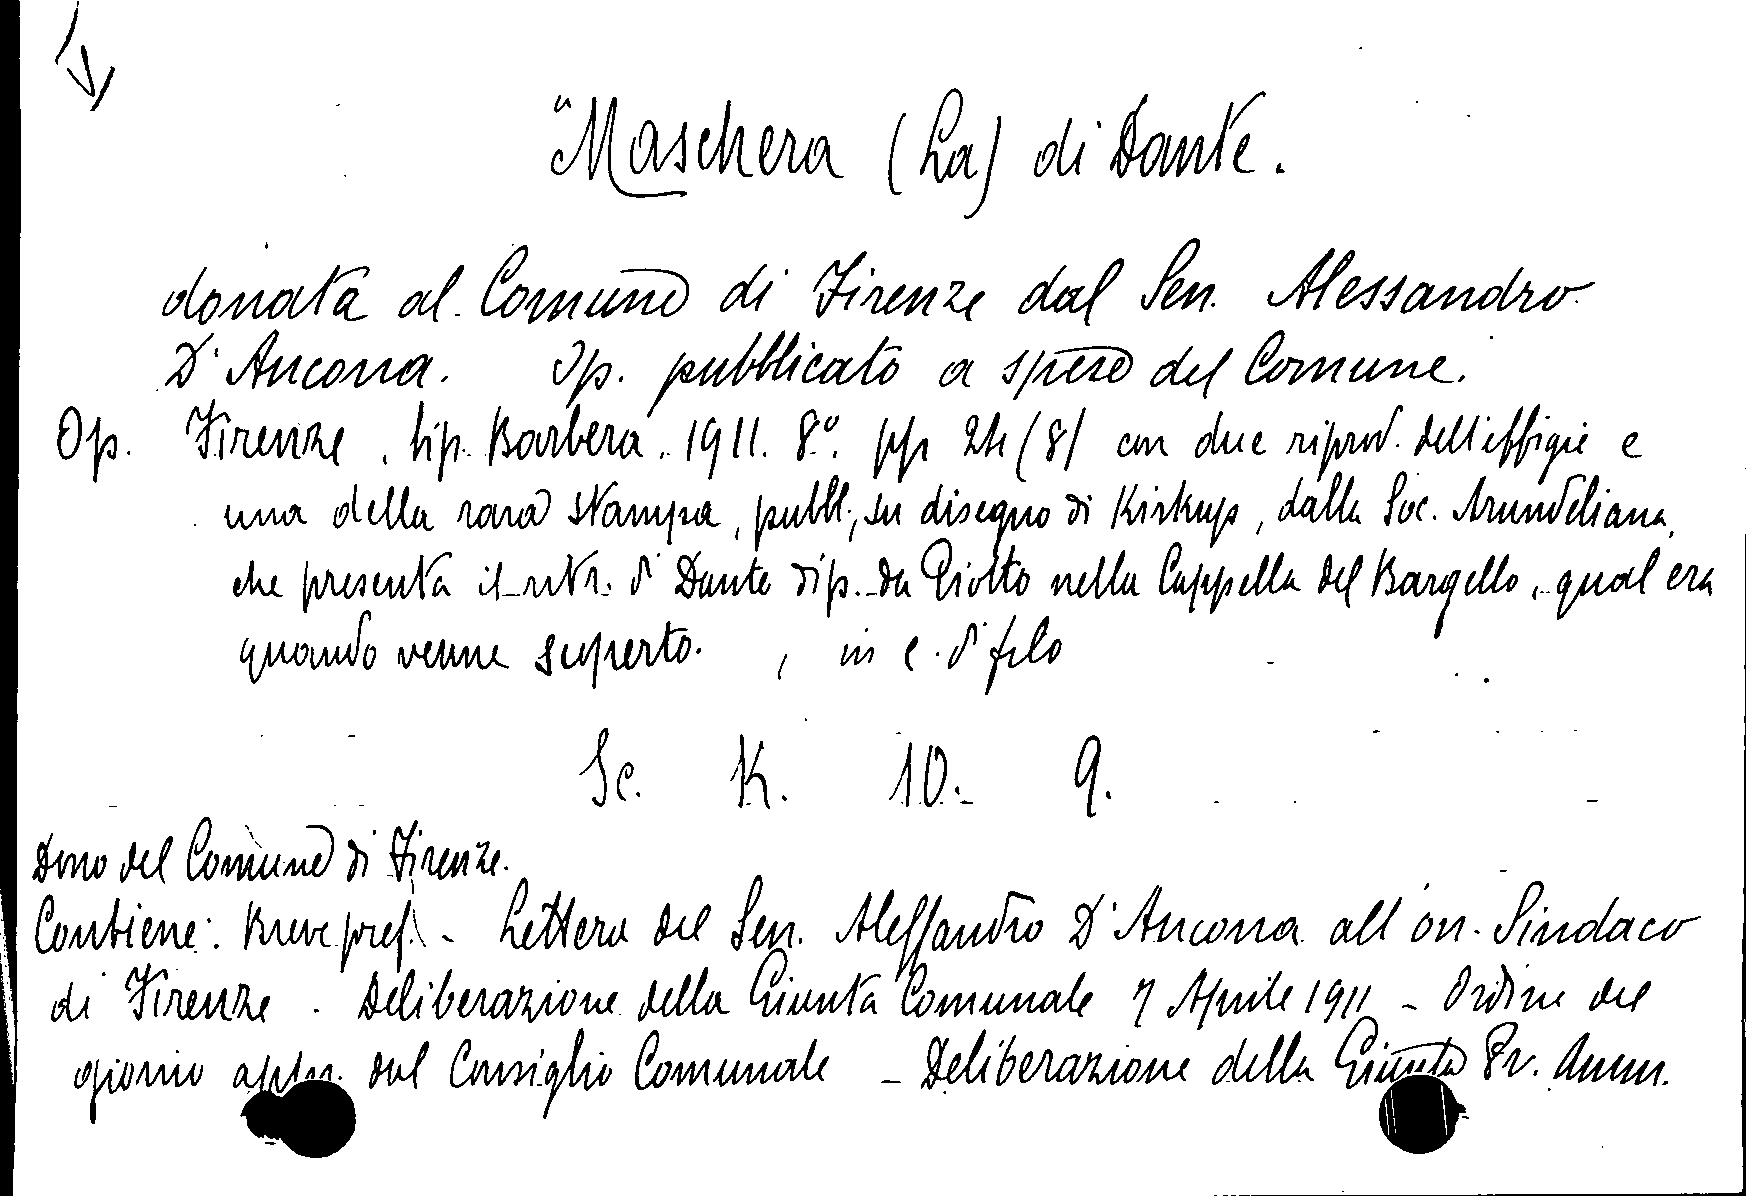 "Maschera (La) di Dante.
donata al Comune di Firenze dal Sen. Alessandro
D'Ancona. Op. pubblicato a spese del Comune.
Op. Firenze, tip. Barbera. 1911. 8°. pp 24 (8) con due riprod. dell'effigie e
una della rara stampa, pubbl., su disegno di Kirkup, dalla Soc. Arundeliana,
che presenta il ritr. di Dante dip. da Giotto nella Cappella del Bargello, qual era
quando venne scoperto. , in c. di filo
Sc. K. 10. 9.
Dono del Comune di Firenze.
Contiene: Breve pref. - Lettera del Sen. Alessandro D'Ancona all'on. Sindaco
di Firenze. Deliberazione della Giunta Comunale 7 Aprile 1911 - Ordine del
giorno appr. dal Consiglio Comunale - Deliberazione della Giunta Pr. Amm.